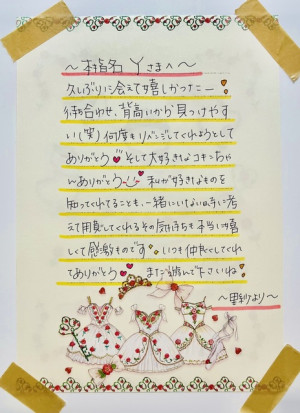 〜本指名 Yさまへ〜
久しぶりに会えて嬉しかったー
待ち合わせ、背高いから見つけやす
い(笑)何度もリベンジしてくれようとして
ありがとう♥そして大好きなコキンちゃ
〜ありがとう 私が好きなものを
知ってくれてることも、一緒にいない時に考
えて用意してくれるその気持ちも本当に嬉
しくて感激ものです いつも仲良くしてくれ
てありがとう♥ また遊んで下さいね
より〜